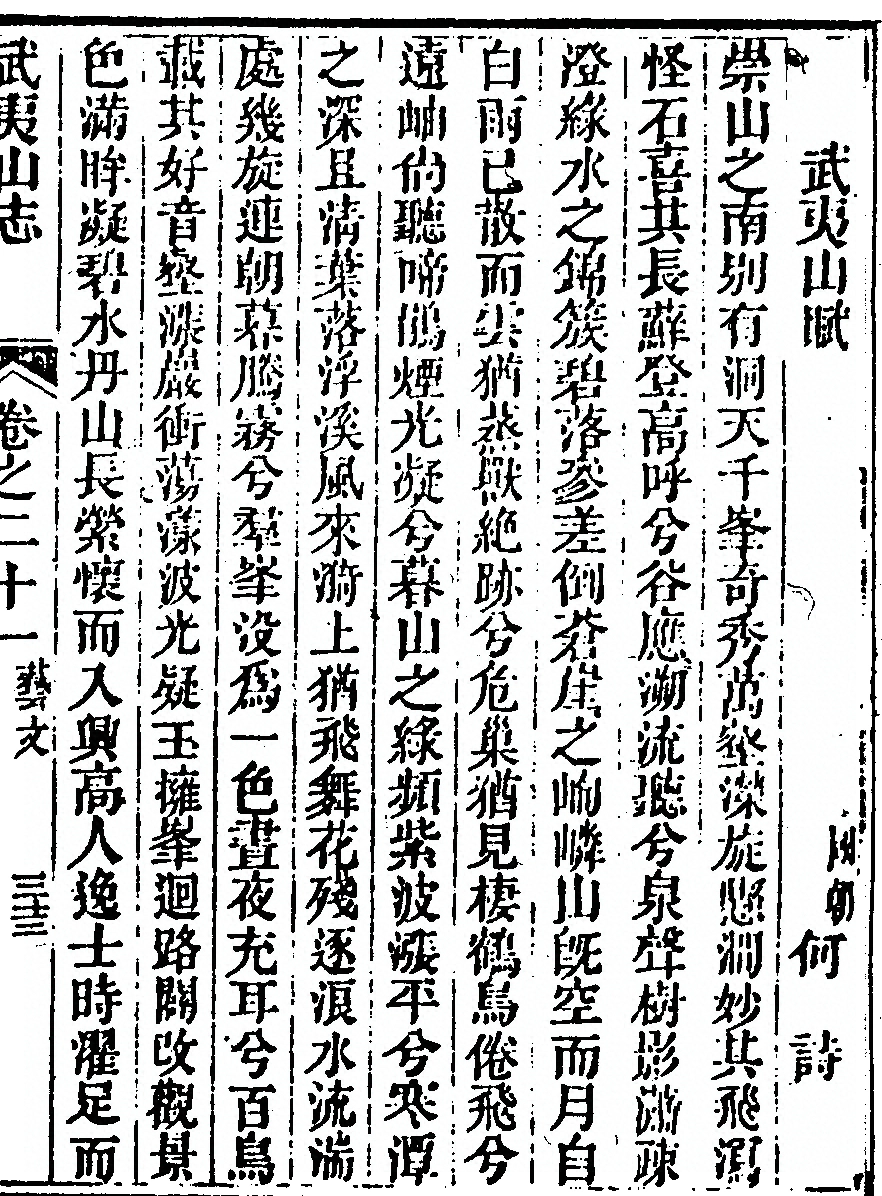 武夷山賦
國朝 何 詩
崇山之南別有洞天千峯奇秀萬壑深旋懸澗妙其飛瀉
怪石喜其長蘇登高呼兮谷應溯流聽兮泉聲樹影瀟疎
澄綠水之錦簇碧落參差倒蒼崖之峋嶙山旣空而月自
白雨已散而雲猶蒸獸絶跡兮危巢猶見棲鶴鳥倦飛兮
遠岫尙聽啼鵑煙光凝兮暮山之綠頻紫波漲平兮寒潭
之深且淸葉落浮溪風來漪上猶飛舞花殘逐浪水流湍
處幾旋連朝暮騰霧兮羣峯沒爲一色晝夜充耳兮百鳥
載其好音壑漲巖衝蕩漾波光疑玉擁峯迴路闢改觀景
色滿眸凝碧水丹山長縈懷而入興高人逸士時濯足而
武夷山志 卷之二十一 藝文 三十三